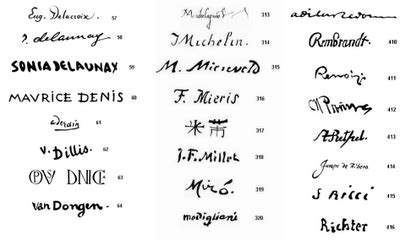 Eug. Delacroix. 57
r. delaunay 58
SONIA DELAUNAY 59
MAVRICE DENIS 60
aderain 61
v. Dillis. 62
63
van Dongen. 64
313
J Michelin. 314
M. Miereveld 315
F. Mieris 316
米芾 317
J. F. Millet 318
Miró. 319
modigliani 320
odilon redon
Rembrandt. 410
Renoir. 411
412
A Rethel. 413
Jusepe de Ribera 414
S Ricci 415
Richter 416